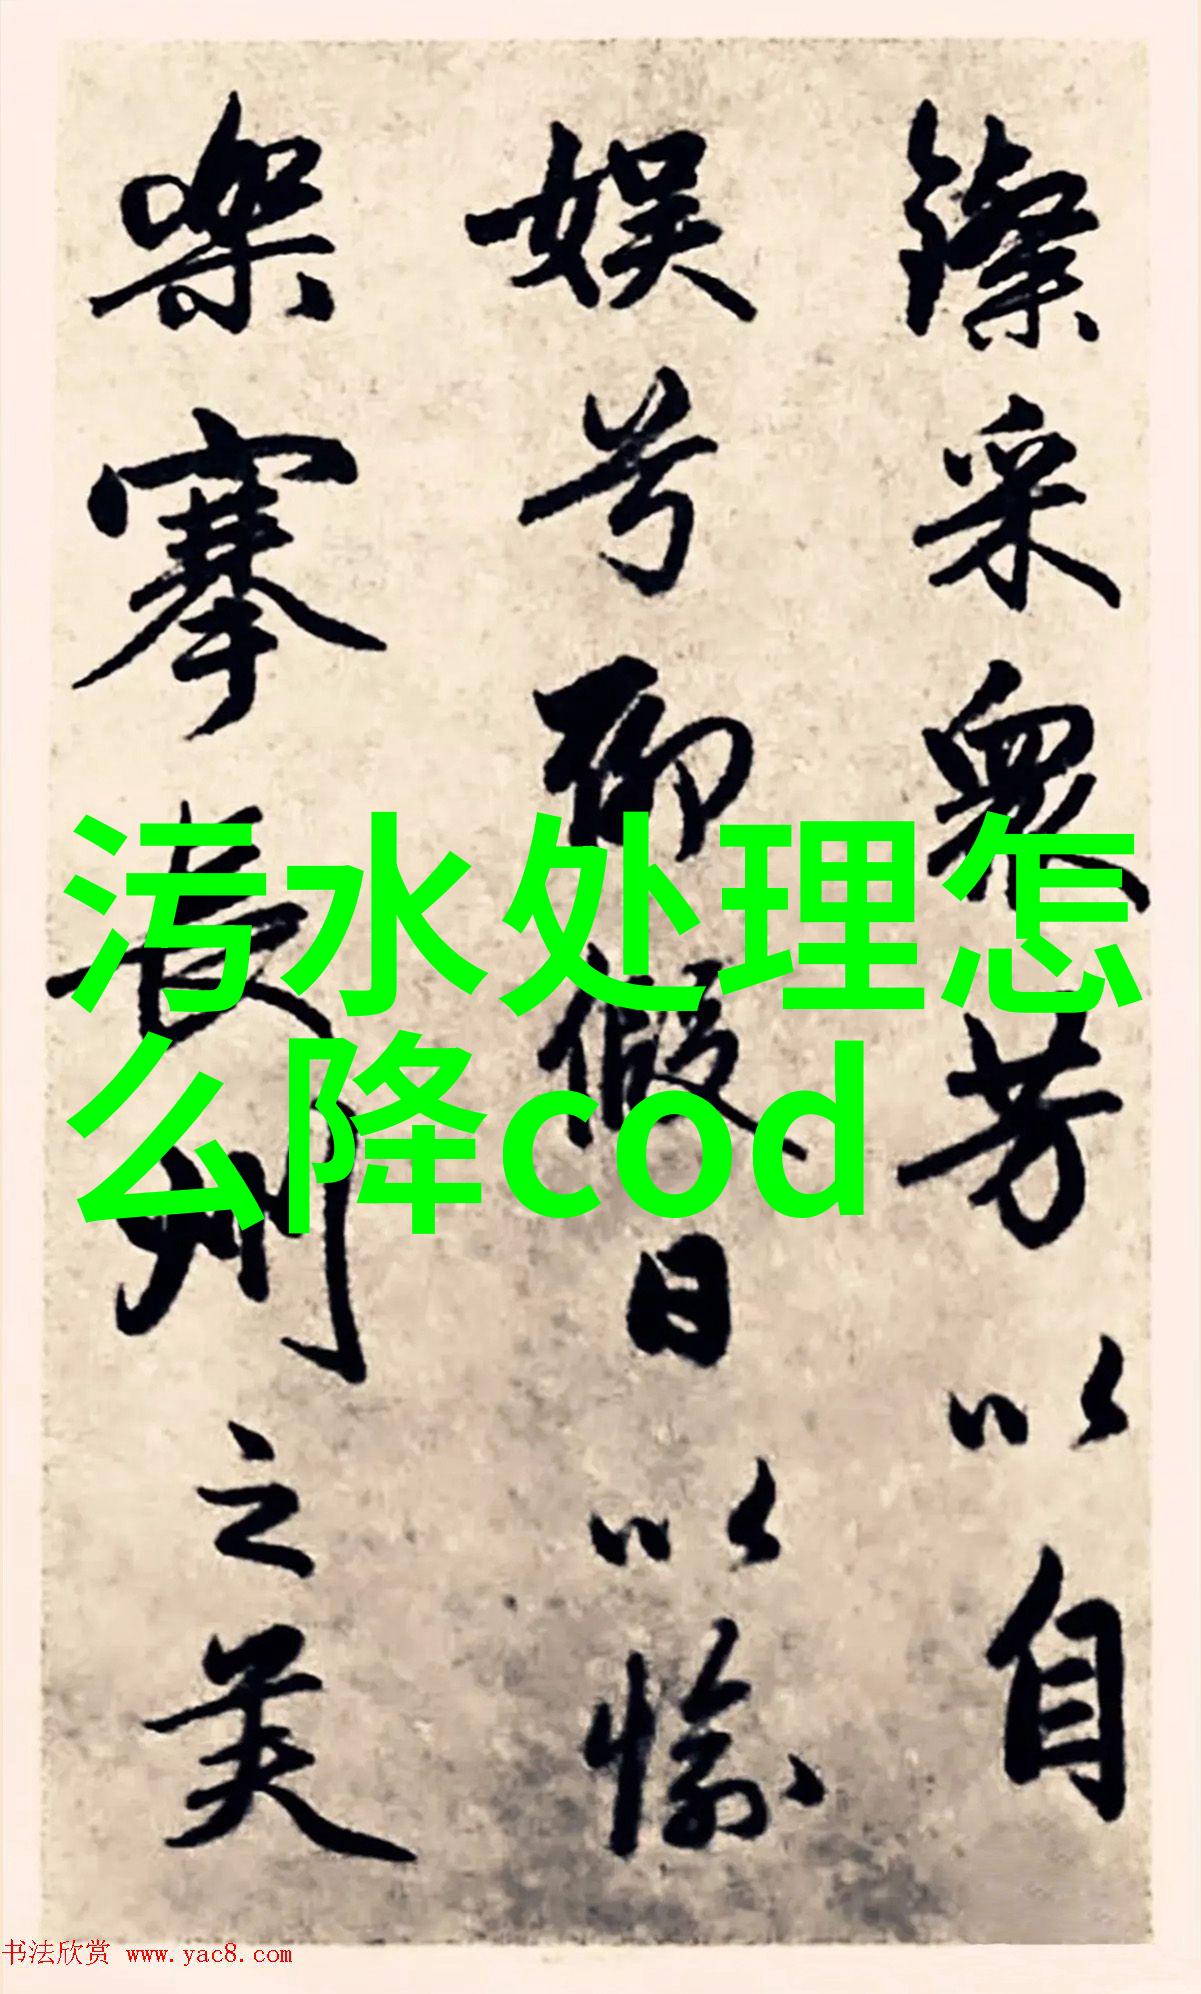 鏶采众芳以自
娱兮聊假日以愉
乐搴长洲之美
污水处理怎
么降cod
书法欣赏 www.yac8.com